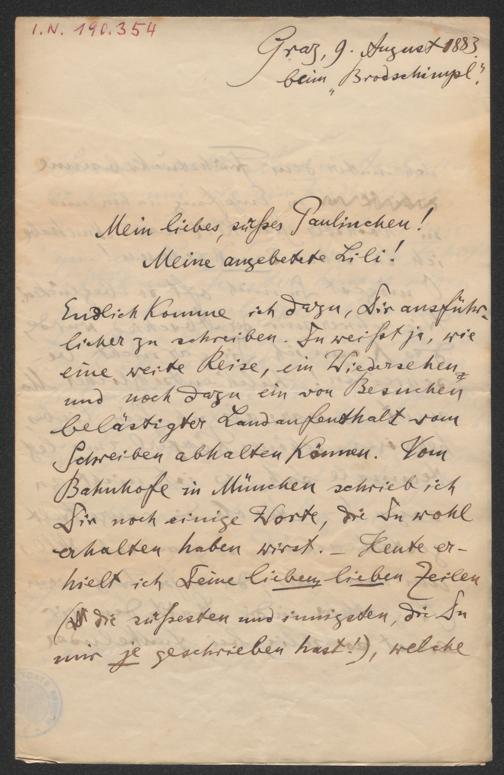 I.N. 190.354
Graz, 9. August 1883
beim „Brodschimpl".
Mein liebes, süßes Paulinchen!
Meine angebetete Lili!
Endlich komme ich dazu, Dir ausführ-
licher zu schreiben. Du weißt ja, wie
eine weite Reise, ein Wiedersehen,
und noch dazu ein von Besuchen
belästigter Landaufenthalt vom
Schreiben abhalten können. Vom
Bahnhofe in München schrieb ich
Dir noch einige Worte, die Du wohl
erhalten haben wirst. – Heute er-
hielt ich Deine lieben, lieben Zeilen
(die süßesten und innigsten, die Du
mir je geschrieben hast!), welche